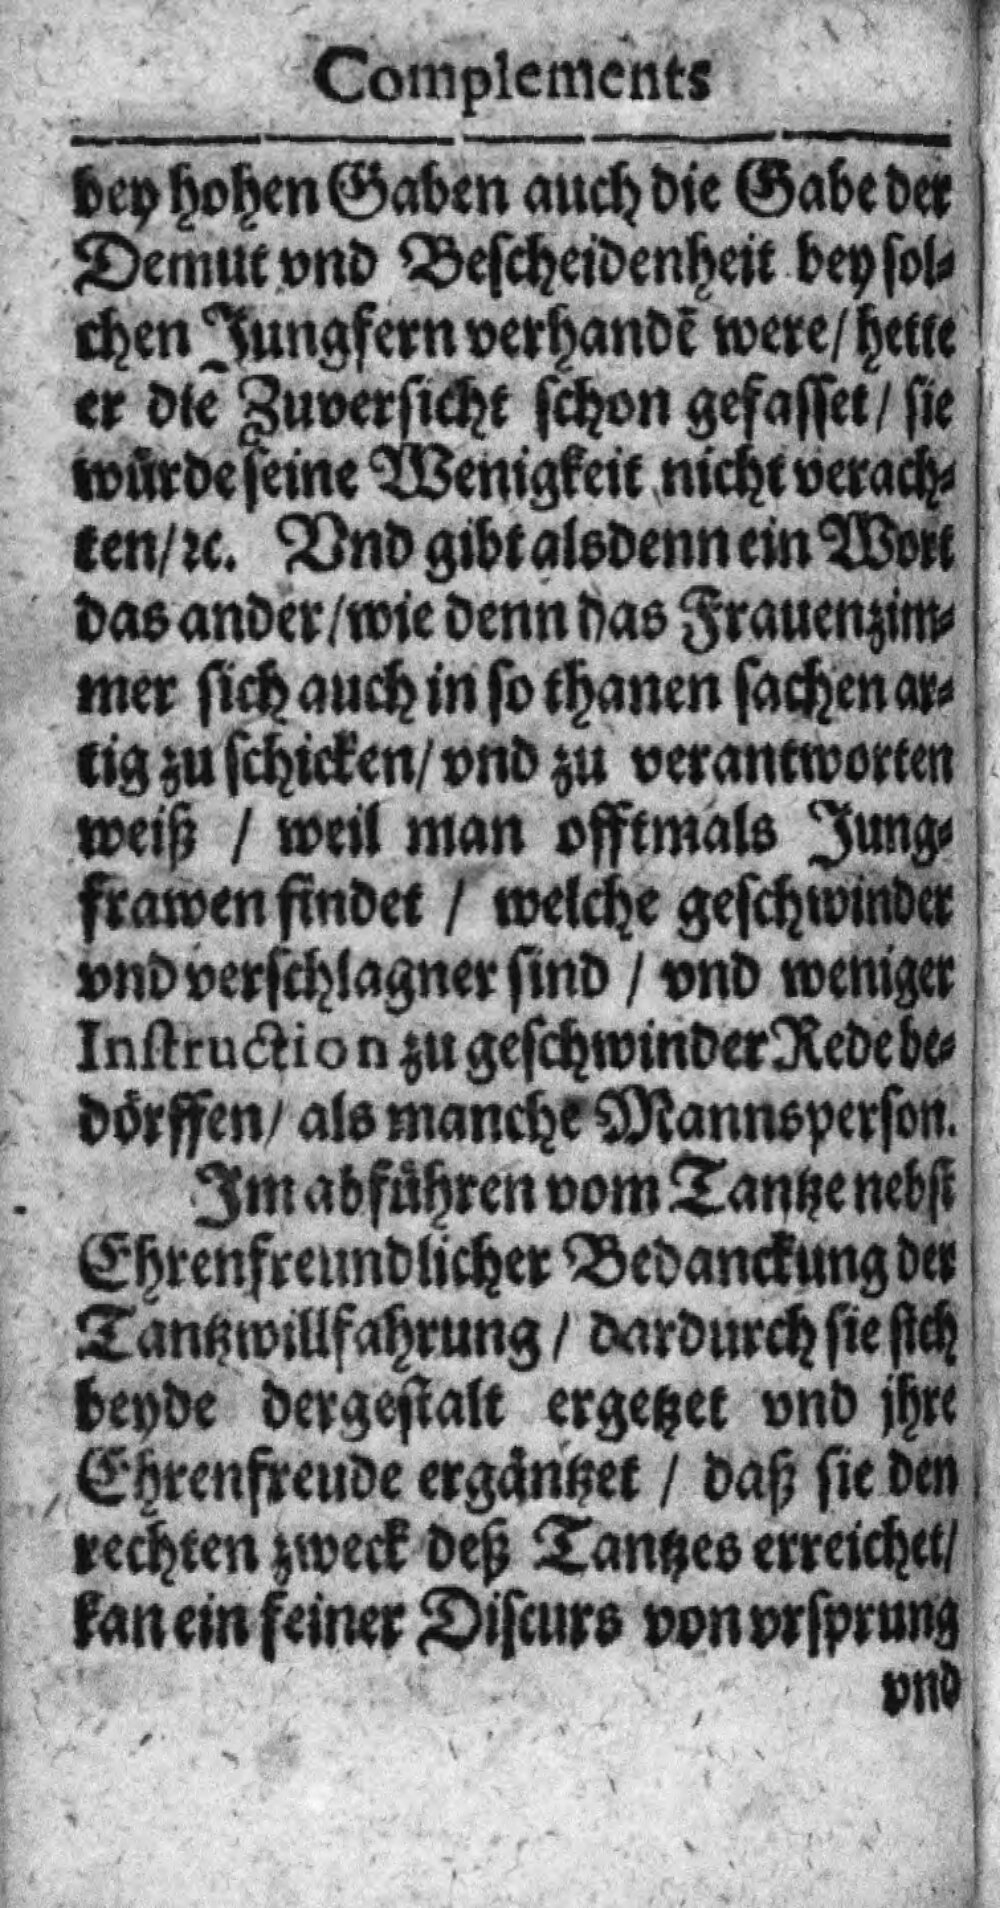 Complements
bey hohen Gaben auch die Gabe der
Demut vnd Bescheidenheit bey sol-
chen Jungfern verhandẽ were/ hette
er die Zuversicht schon gefasset/ sie
wuͤrde seine Wenigkeit nicht verach-
ten/ꝛc. Vnd gibt alsdenn ein Wort
das ander/wie denn das Frauenzim-
mer sich auch in so thanen sachen ar-
tig zu schicken/ vnd zu verantworten
weiß / weil man offtmals Jung-
frawen findet / welche geschwinder
vnd verschlagner sind / vnd weniger
Instruction zu geschwinder Rede be-
doͤrffen/ als manche Mannsperson.
Im abfuͤhren vom Tantze nebst
Ehrenfreundlicher Bedanckung der
Tantzwillfahrung / dardurch sie sich
beyde dergestalt ergetzet vnd jhre
Ehrenfreude ergaͤntzet / daß sie den
rechten zweck deß Tantzes erreichet/
kan ein feiner Discurs von vrsprung
vnd